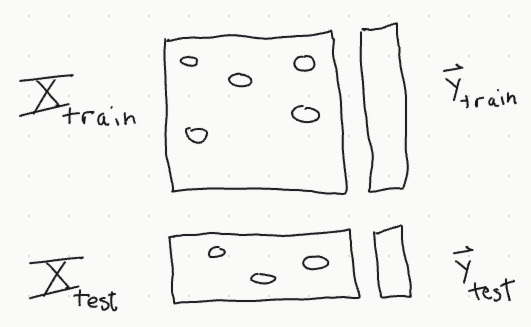 X train y⃗ train
X test y⃗ test